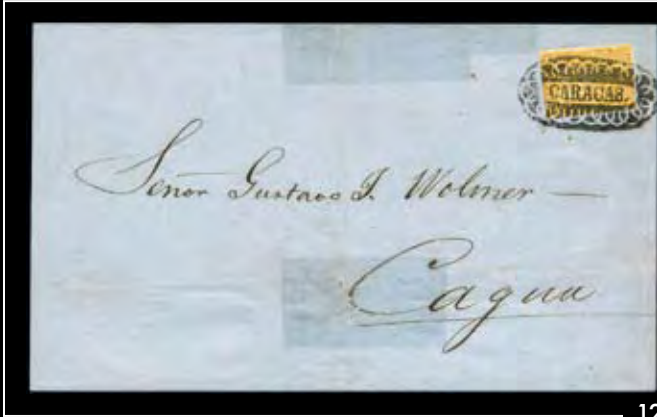 CARACAS.
Señor Gustavo J. Wolmer —
Cagua
12